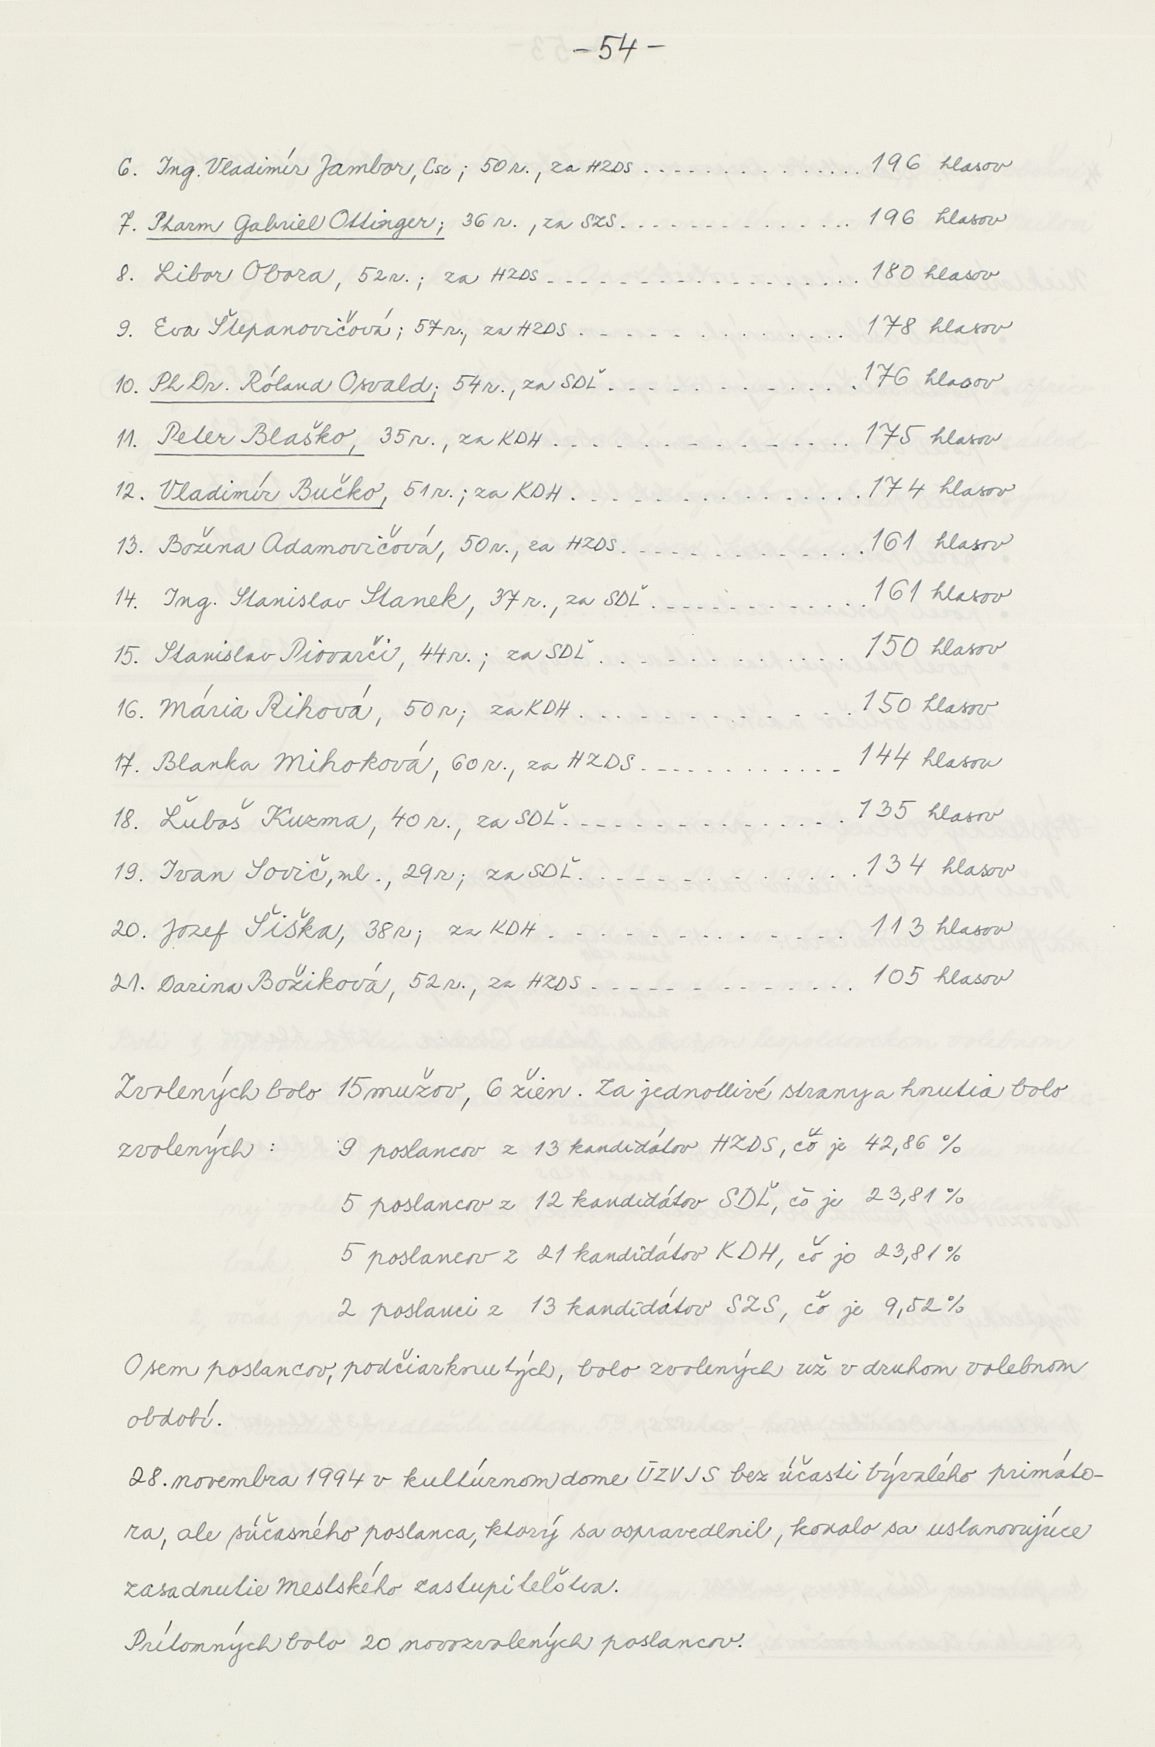 - 54 -
6. Ing. Vladimír Jambor, Csc; 50 r., za HZDS .............. 196 hlasov
7. Pharm Gabriel Ottinger; 36 r., za SZS ............. 196 hlasov
8. Libor Obora, 52 r.; za HZDS .................. 180 hlasov
9. Eva Štepanovičová; 57 r., za HZDS ............. 178 hlasov
10. PhDr. Róland Osvald; 54 r., za SDĽ ............ 176 hlasov
11. Peter Blaško, 35 r., za KDH .............. 175 hlasov
12. Vladimír Bučko, 51 r.; za KDH ............. 174 hlasov
13. Božena Adamovičová, 50 r., za HZDS ............. 161 hlasov
14. Ing. Stanislav Stanek, 37 r., za SDĽ ............ 161 hlasov
15. Stanislav Piovarči, 44 r.; za SDĽ ............ 150 hlasov
16. Mária Rihová, 50 r; za KDH ............. 150 hlasov
17. Blanka Mihoková, 60 r., za HZDS ............ 144 hlasov
18. Ľuboš Kuzma, 40 r., za SDĽ ............. 135 hlasov
19. Ivan Sovič, ml., 29 r; za SDĽ ............. 134 hlasov
20. Jozef Šiška, 38 r; za KDH ............. 113 hlasov
21. Darina Božiková, 52 r., za HZDS ............. 105 hlasov
Zvolených bolo 15 mužov, 6 žien. Za jednotlivé strany a hnutia bolo
zvolených : 9 poslancov z 13 kandidátov HZDS, čo je 42,86 %
5 poslancov z 12 kandidátov SDĽ, čo je 23,81 %
5 poslancov z 21 kandidátov KDH, čo je 23,81 %
2 poslanci z 13 kandidátov SZS, čo je 9,52 %
Osem poslancov, podčiarknutých, bolo zvolených už v druhom volebnom
období.
28. novembra 1994 v kultúrnom dome ÚZVJS bez účasti bývalého primáto-
ra, ale súčasného poslanca, ktorý sa ospravedlnil, konalo sa ustanovujúce
zasadnutie Mestského zastupiteľstva.
Prítomných bolo 20 novozvolených poslancov.